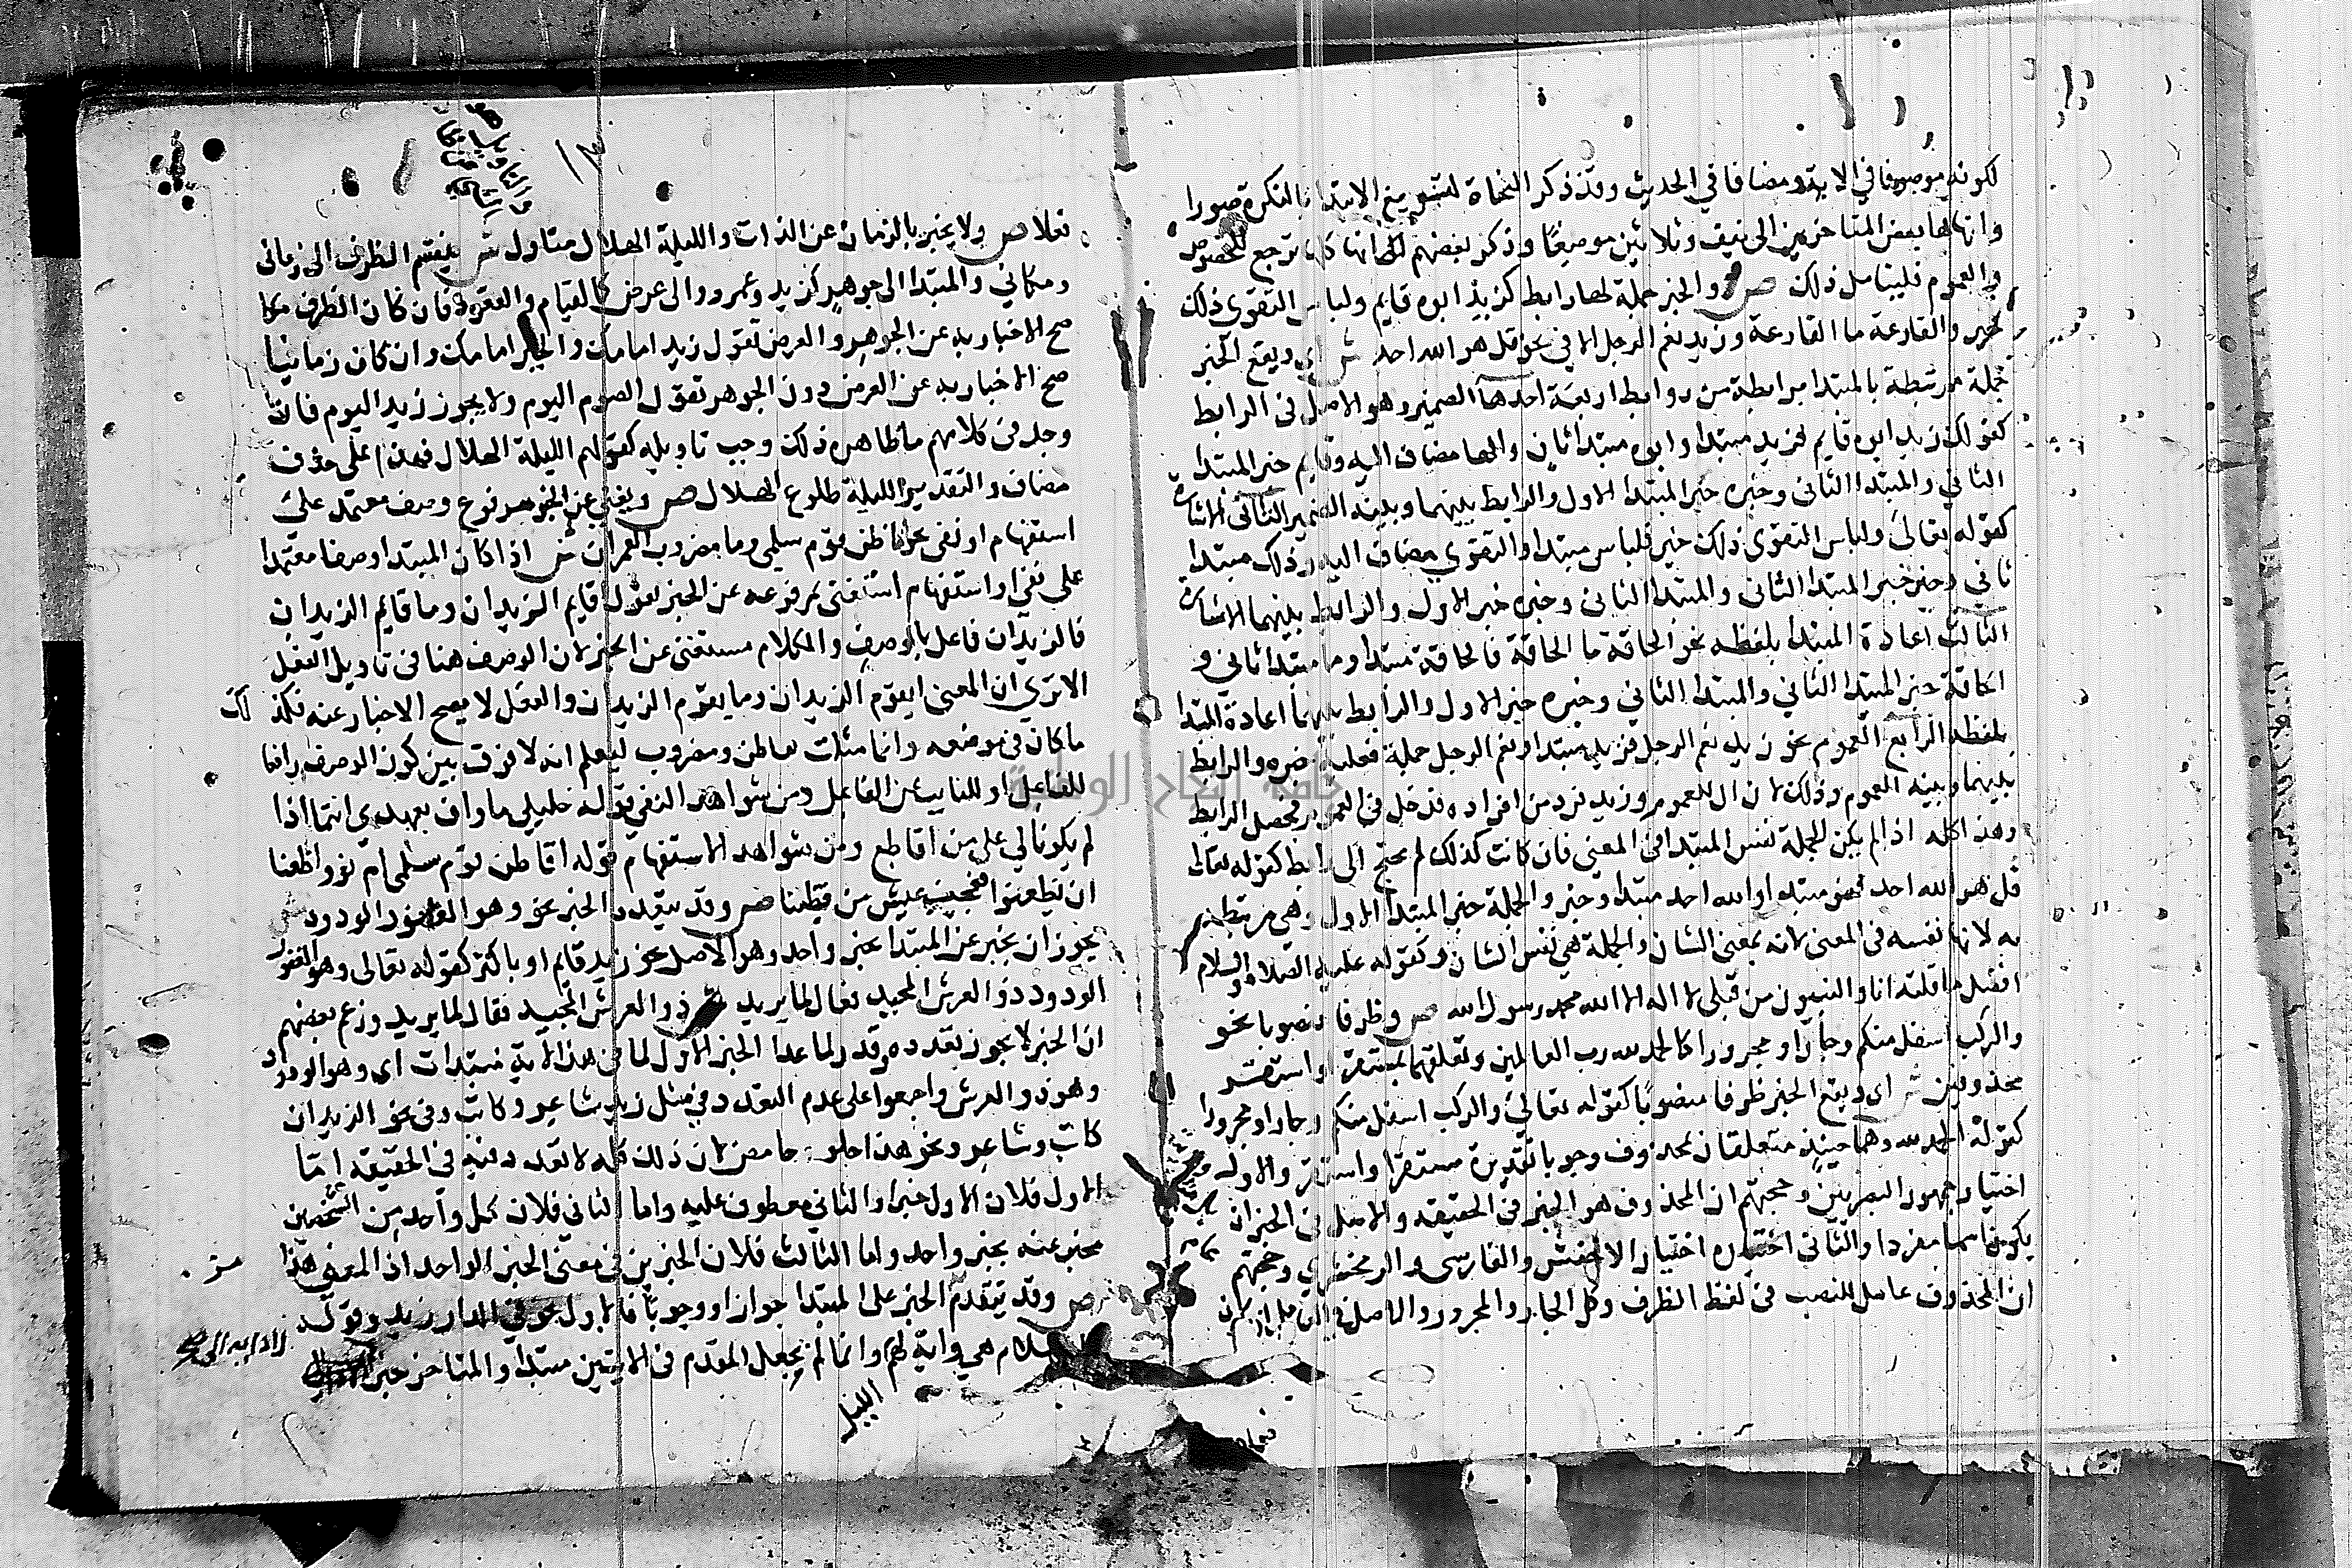 لكونه موصوفا في الاية ومضافا في الحديث وقد ذكر النحاة لتسويغ الابتدا بالنكرة صورا
وانهاها بعض المتاخرين الى نيف وثلاثين موضعًا وذكر بعضهم انها كلها ترجع للخصوص
والعموم فليتامل ذلك ص والخبر جملة لها رابط كزيد ابوه قايم ولباس التقوى ذلك
خير والقارعة ما القارعة وزيد نعم الرجل الا في نحو قل هو الله احد ش اي ويقع الخبر
جملة مرتبطة بالمبتدا برابطة من روابط اربعة احدها الضمير وهو الاصل فى الرابط
كقولك زيد ابوه قايم فزيد مبتدا وابوه مبتدا ثان والها مضاف اليه وقايم خبر المبتدا
الثاني والمبتدا الثانى وخبره خبر المبتدا الاول والرابط بينهما وبينه الضمير الثانى الاشارة
كقوله تعالى ولباس التقوى ذلك خير فلباس مبتدا والتقوى مضاف اليه وذلك مبتدا
ثانى وخير خبر المبتدا الثانى والمبتدا الثانى وخبره خبر الاول والرابط بينهما الاشارة
الثالث اعادة المبتدا بلفظه نحو الحاقة ما الحاقة فالحاقة مبتدا وما مبتدا ثانى و
الحاقة خبر المبتدا الثاني والمبتدا الثاني وخبره خبر الاول والرابط بينهما اعادة المبتدا
بلفظه الرابع العموم نحو زيد نعم الرجل فزيد مبتدا ونعم الرجل جملة فعلية خبره والرابط
بينهما وبينه العموم وذلك لان ال للعموم وزيد فرد من افراده فدخل فى العموم فحصل الرابط
وهذا كله اذا لم يكن الجملة نفس المبتدا فى المعنى فان كانت كذلك لم يحتج الى رابط كقوله تعالى
قل هو الله احد فهو مبتدا والله احد مبتدا وخبر والجملة خبر المبتدا الاول وهي مرتبطة
به لانها نفسه فى المعنى لانه بمعنى الشان والجملة هي نفس الشان وكقوله عليه الصلاة والسلام
افضل ما قلته انا والنبيون من قبلى لا اله الا الله محمد رسول الله ص وظرفا منصوبا نحو
والركب اسفل منكم وجارّا ومجرورا كالحمد لله رب العالمين وتعلقهما بمستقر او استقر
محذوفين ش اي ويقع الخبر ظرفا منصوبًا كقوله تعالى والركب اسفل منكم وجارا ومجرورا
كقوله الحمد لله وهما حينيذ متعلقان بمحذوف وجوبا تقديره مستقر او استقر والاول
اختيار جمهور البصريين وحجتهم ان المحذوف هو الخبر فى الحقيقه والاصل فى الخبر ان
يكون اسما مفردا والثانى اختيار الاخفش والفارسى والزمخشري وحجتهم
ان المحذوف عامل النصب فى لفظ الظرف ومحل الجار والمجرور والاصل في العامل ان يكون
فعلا ص ولا يخبر بالزمان عن الذات والليلة الهلال متاول ش ينقسم الظرف الى زمانى
ومكاني والمبتدا الى جوهر كزيد وعمرو والى عرض كالقيام والقعود فان كان الظرف مكا
صح الاخبار به عن الجوهر والعرض تقول زيد امامك والخير امامك وان كان زمانيا
صح الاخبار به عن العرض دون الجوهر تقول الصوم اليوم ولا يجوز زيد اليوم فان
وجد فى كلامهم ما ظاهره ذلك وجب تاويله كقولهم الليلة الهلال فهذا على حذف
مضاف والتقدير الليلة طلوع الهلال ص ويغني عن الخبر مرفوع وصف معتمد على
استفهام او نفى نحو اقاطن قوم سلمى وما مضروب العمران ش اذا كان المبتدا وصفا معتمدا
على نفى او استفهام استغنى بمرفوعه عن الخبر تقول اقايم الزيدان وما قايم الزيدان
فالزيدان فاعل بالوصف والكلام مستغنى عن الخبر لان الوصف هنا فى تاويل الفعل
الا ترى ان المعنى ايقوم الزيدان وما يقوم الزيدان والفعل لا يصح الاخبار عنه فكذلك
ما كان فى موضعه وانما مثلت بقاطن ومضروب ليعلم انه لا فرق بين كون الوصف رافعا
للفاعل او للنايب عن الفاعل ومن شواهد النفى قوله خليلي ما واف بعهدي انتما اذا
لم يكونا لي على من اقاطع ومن شواهد الاستفهام قوله اقاطن قوم سلمى ام نووا ظعنا
ان يظعنوا فعجيب عيش من قطنا ص وقد يتعدد الخبر نحو وهو الغفور الودود ش
يجوز ان يخبر عن المبتدا بخبر واحد وهو الاصل نحو زيد قايم او باكثر كقوله تعالى وهو الغفور
الودود ذو العرش المجيد فعال لما يريد وزعم بعضهم
ان الخبر لا يجوز تعدده وقدر لما عدا الخبر الاول لما فى هذه الاية مبتدات اى وهو الودود
وهو ذو العرش واجمعوا على عدم التعدد في مثل زيد شاعر وكاتب وفى نحو الزيدان
كاتب وشاعر ونحو هذا حلو حامض لان ذلك كله لا تعدد فيه فى الحقيقه امّا
الاول فلان الاول خبر والثاني معطوف عليه واما الثانى فلان كل واحد من الشخصين
مخبر عنه بخبر واحد واما الثالث فلان الخبرين فى معنى الخبر الواحد اذ المعنى هذا مز
ص وقد يتقدم الخبر على المبتدا جوازا ووجوبا فالاول نحو في الدار زيد وقوله
سلام هي واية لهم وانما لم يجعل المقدم فى الايتين مبتدا والمتاخر خبرا
الليل